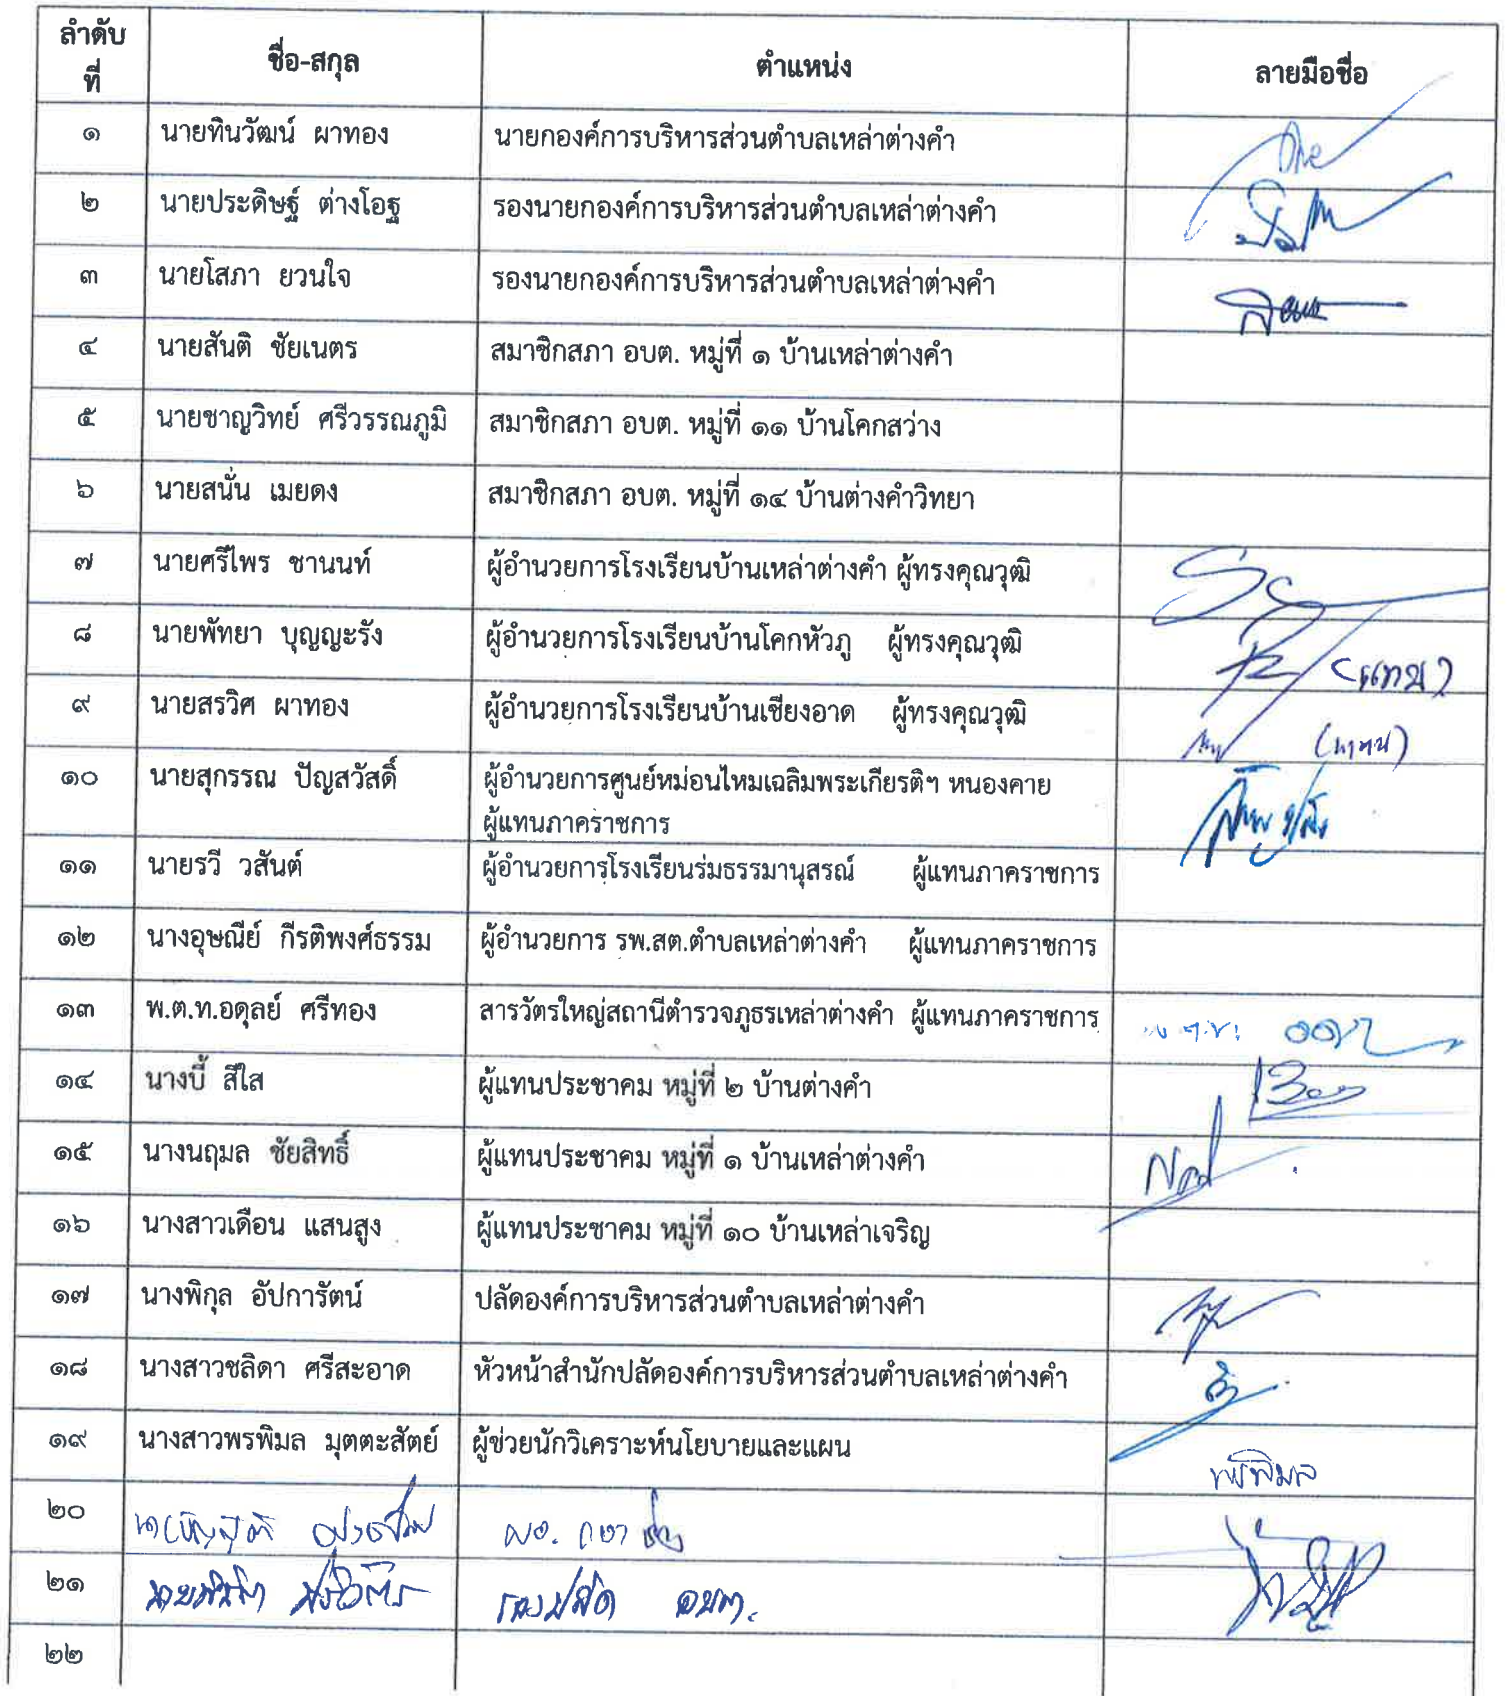 ลำดับที่ ชื่อ-สกุล ตำแหน่ง ลายมือชื่อ
๑ นายทินวัฒน์ ผาทอง นายกองค์การบริหารส่วนตำบลเหล่าต่างคำ
๒ นายประดิษฐ์ ต่างโอฐ รองนายกองค์การบริหารส่วนตำบลเหล่าต่างคำ
๓ นายโสภา ยวนใจ รองนายกองค์การบริหารส่วนตำบลเหล่าต่างคำ
๔ นายสันติ ชัยเนตร สมาชิกสภา อบต. หมู่ที่ ๑ บ้านเหล่าต่างคำ
๕ นายชาญวิทย์ ศรีวรรณภูมิ สมาชิกสภา อบต. หมู่ที่ ๑๑ บ้านโคกสว่าง
๖ นายสนั่น เมยดง สมาชิกสภา อบต. หมู่ที่ ๑๔ บ้านต่างคำวิทยา
๗ นายศรีไพร ชานนท์ ผู้อำนวยการโรงเรียนบ้านเหล่าต่างคำ ผู้ทรงคุณวุฒิ
๘ นายพัทยา บุญญะรัง ผู้อำนวยการโรงเรียนบ้านโคกหัวภู ผู้ทรงคุณวุฒิ (แทน)
๙ นายสรวิศ ผาทอง ผู้อำนวยการโรงเรียนบ้านเชียงอาด ผู้ทรงคุณวุฒิ (แทน)
๑๐ นายสุกรรณ ปัญสวัสดิ์ ผู้อำนวยการศูนย์หม่อนไหมเฉลิมพระเกียรติฯ หนองคาย
ผู้แทนภาคราชการ
๑๑ นายรวี วสันต์ ผู้อำนวยการโรงเรียนร่มธรรมานุสรณ์ ผู้แทนภาคราชการ
๑๒ นางอุษณีย์ กีรติพงศ์ธรรม ผู้อำนวยการ รพ.สต.ตำบลเหล่าต่างคำ ผู้แทนภาคราชการ
๑๓ พ.ต.ท.อดุลย์ ศรีทอง สารวัตรใหญ่สถานีตำรวจภูธรเหล่าต่างคำ ผู้แทนภาคราชการ
๑๔ นางบี้ สีใส ผู้แทนประชาคม หมู่ที่ ๒ บ้านต่างคำ
๑๕ นางนฤมล ชัยสิทธิ์ ผู้แทนประชาคม หมู่ที่ ๑ บ้านเหล่าต่างคำ
๑๖ นางสาวเดือน แสนสูง ผู้แทนประชาคม หมู่ที่ ๑๐ บ้านเหล่าเจริญ
๑๗ นางพิกุล อัปการัตน์ ปลัดองค์การบริหารส่วนตำบลเหล่าต่างคำ
๑๘ นางสาวชลิดา ศรีสะอาด หัวหน้าสำนักปลัดองค์การบริหารส่วนตำบลเหล่าต่างคำ
๑๙ นางสาวพรพิมล มุตตะสัตย์ ผู้ช่วยนักวิเคราะห์นโยบายและแผน พรพิมล
๒๐
๒๑ รองปลัด อบต.
๒๒